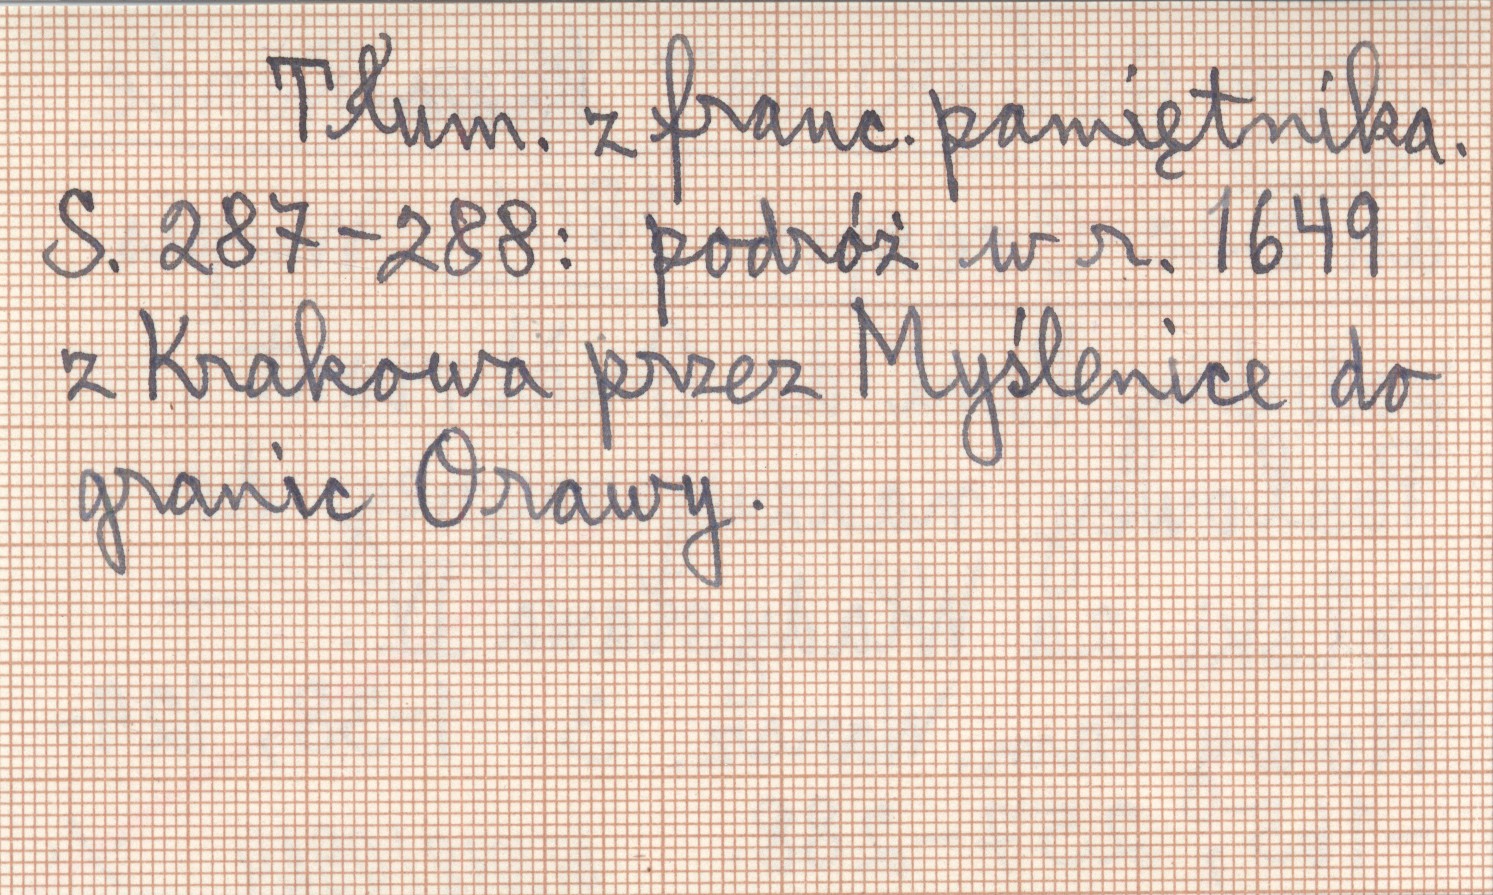 Tłum. z franc. pamiętnika.
S. 287-288: podróż w r. 1649
z Krakowa przez Myślenice do
granic Orawy.